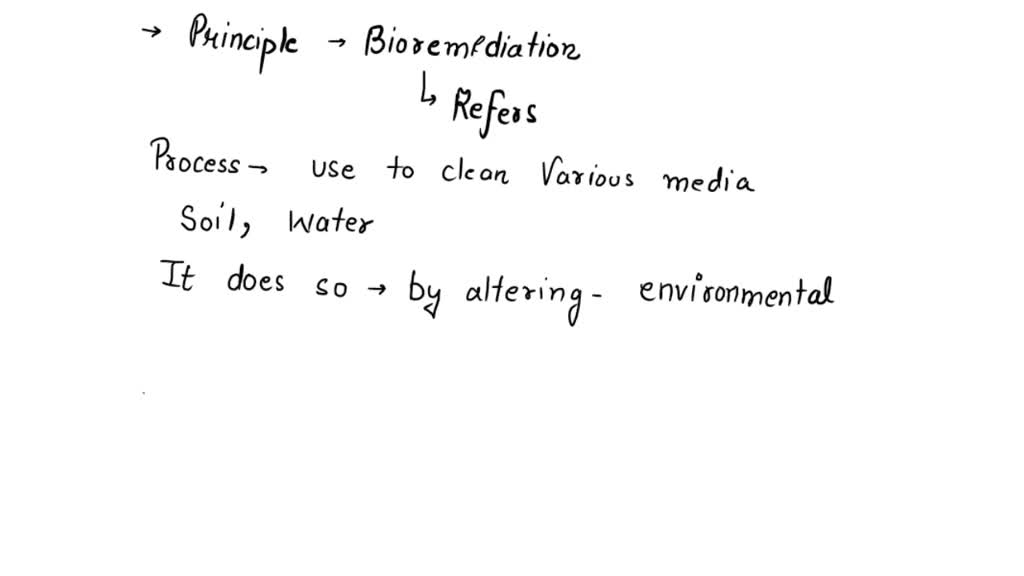 → Principle → Bioremediation
↳ Refers
Process → use to clean Various media
Soil, Water
It does so → by altering - environmental